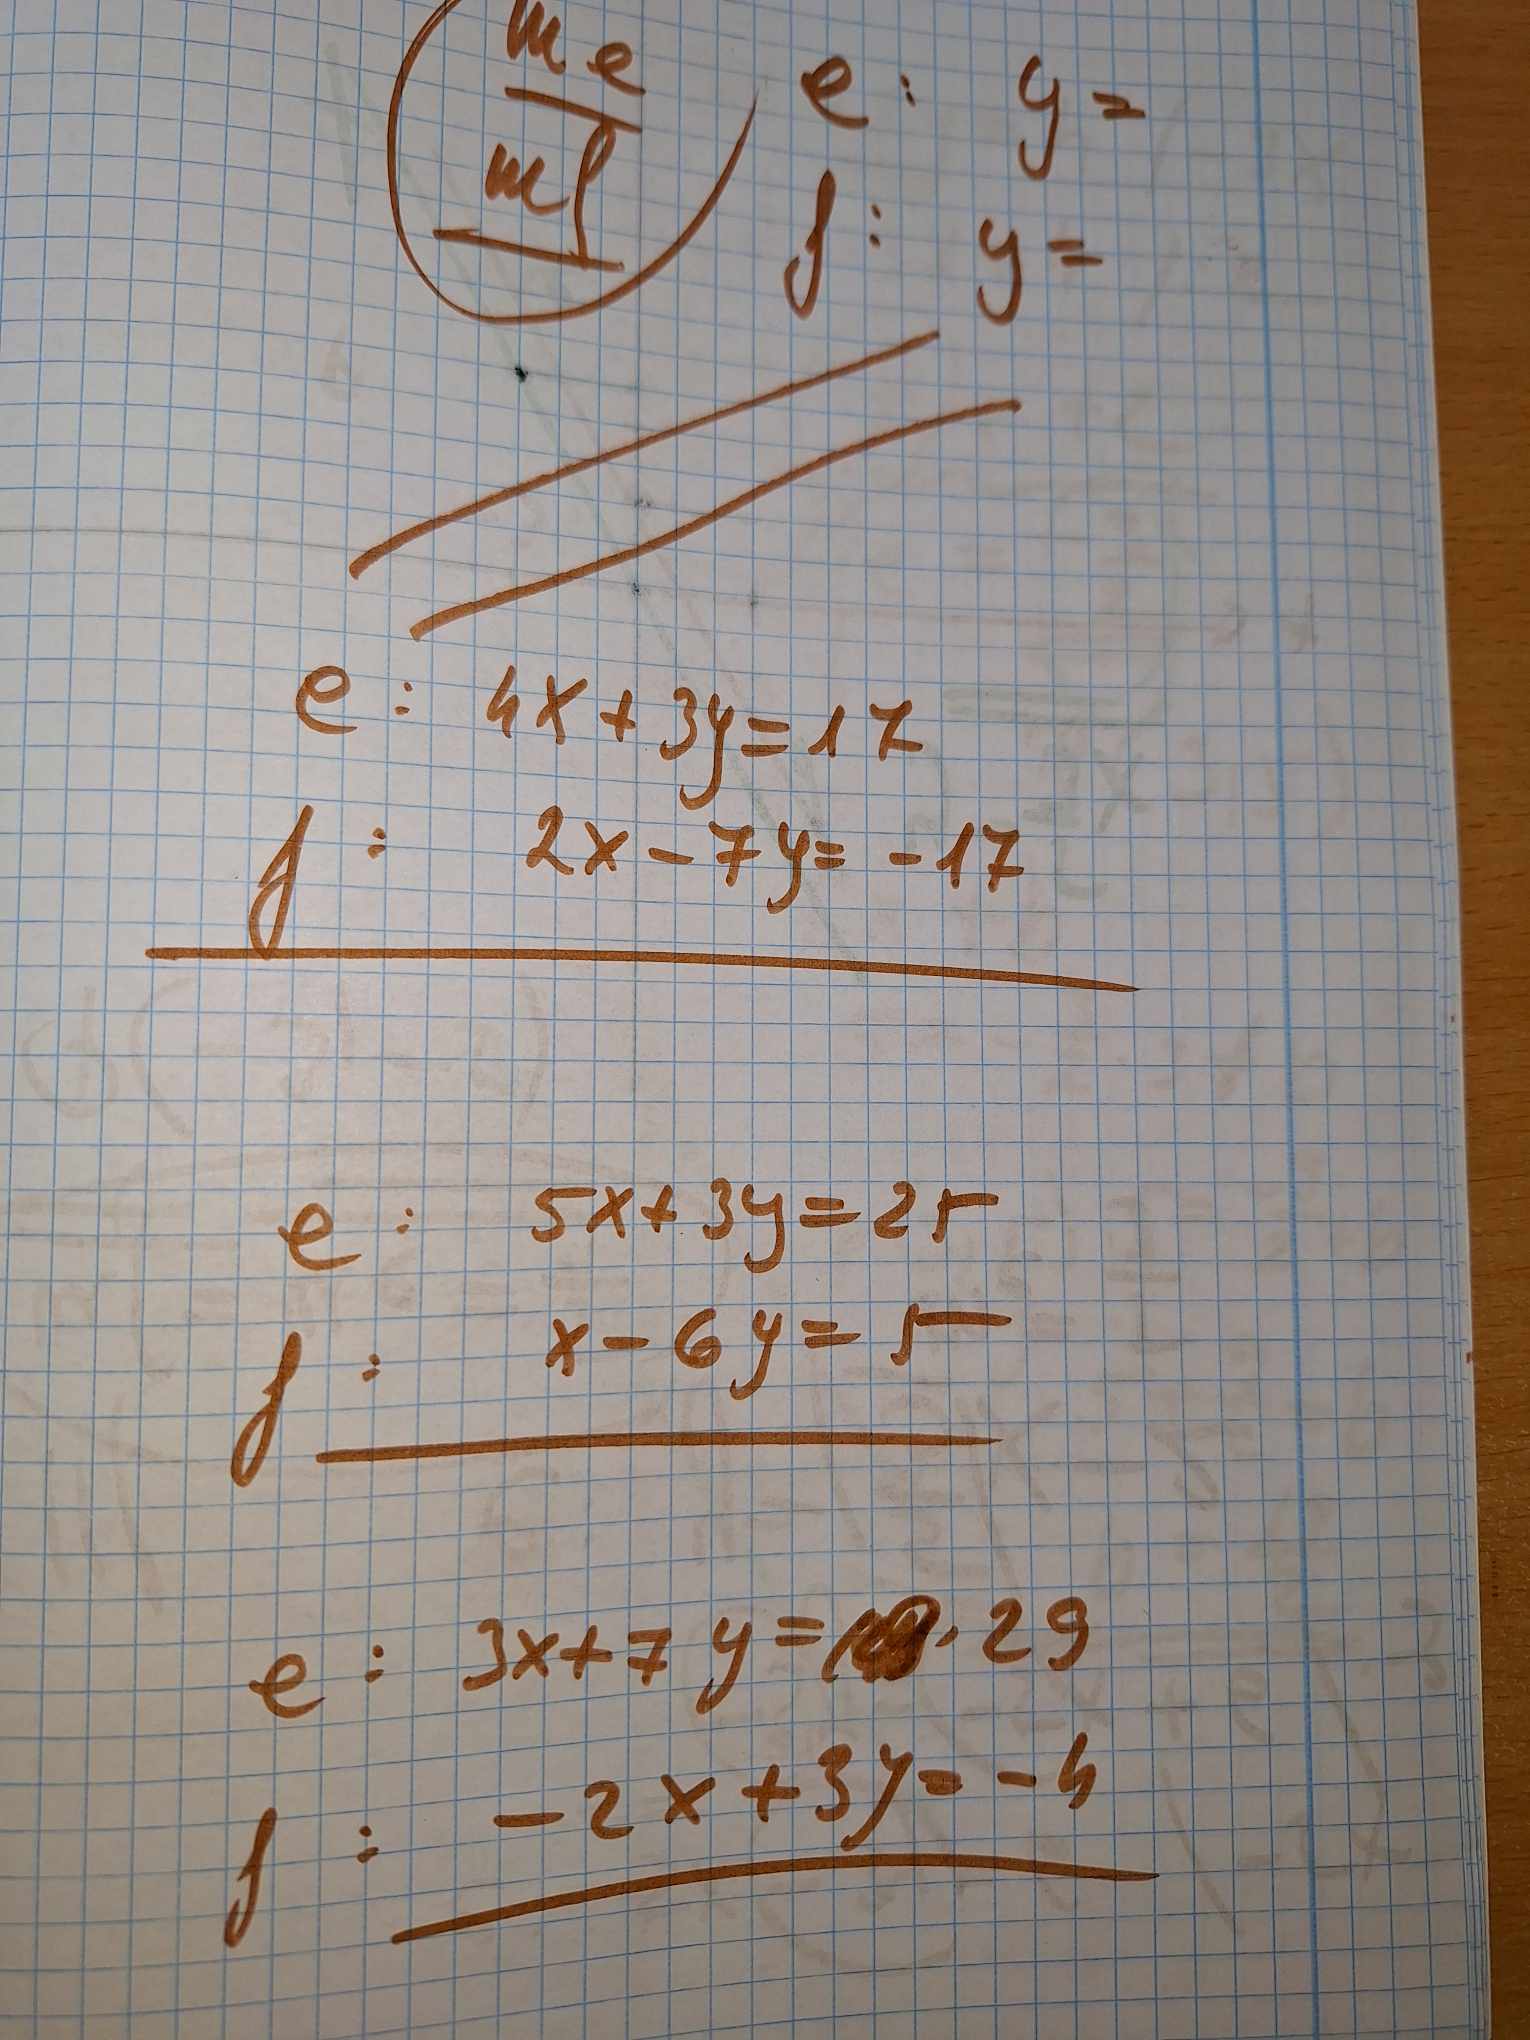 me
mf
e: y=
f: y=
e: 4x+3y=17
f: 2x-7y=-17
e: 5x+3y=25
f: x-6y=5
e: 3x+7y= 29
f: -2x+3y=-4